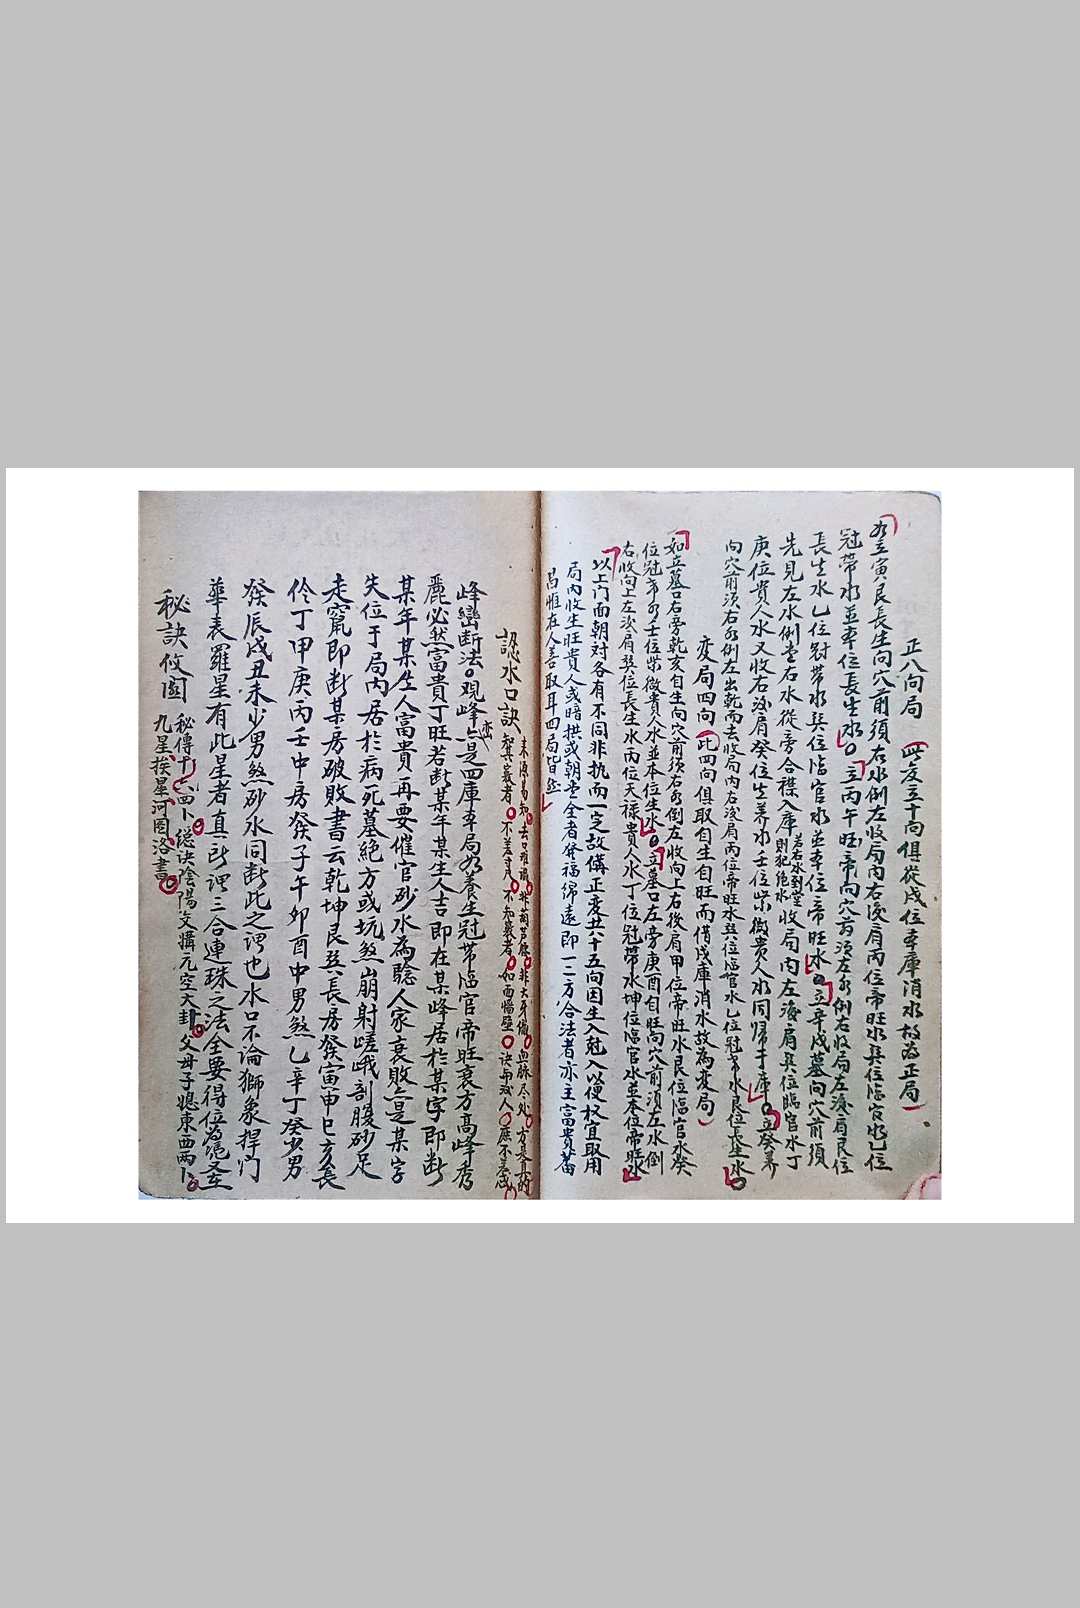 正八向局 此支三十向俱從戌位本庫消水故為正局
如立寅艮長生向穴前須右水倒左收局內右後肩丙位帝旺水巽位臨官水乙位
冠帶水並本位長生水立丙午旺帝向穴前須左水倒右收局左後肩艮位
長生水乙位冠帶水巽位臨官水並本位帝旺水立辛戌墓向穴前須
先見左水倒堂右水從旁合襟入庫若右水到堂則犯絕水收局內左後肩巽位臨官水丁
庚位貴人水又收右後肩癸位生養水壬位紫微貴人水同歸于庫立癸養
向穴前須右水倒左出乾而去收局內右後肩丙位帝旺水巽位臨官水乙位冠帶水艮位長生水
変局四向 此四向俱取自生自旺而借戌庫消水故為変局
如立墓口右旁乾亥自生向穴前須右水倒左收向上右後肩甲位帝旺水艮位臨官水癸
位冠帶水壬位紫微貴人水並本位生水立墓口左旁庚酉自旺向穴前須左水倒
右收向上左後肩巽位長生水丙位天祿貴人水丁位冠帶水坤位臨官水並本位帝旺水
以上门面朝対各有不同非执而一定故備正変共十五向因生入尅入以便权宜取用
局內收生旺貴人或暗拱或朝堂全者發福綿遠即一二方合法者亦主富貴蕃
昌惟在人善取耳四局皆然
認水口訣 来源易知去口难
不差真 不知
峰巒断法观峰巒是四庫本局如養生冠帶臨官帝旺衰方高峰秀
麗必然富貴丁旺若断某年某生人吉即在某峰居於某字即断
某年某生人富貴再要催官砂水為驗人家衰敗亦是某字
失位于局內居於病死墓絕方或坑煞崩射嵯峨剖腹砂足
走竄即断某房破敗書云乾坤艮巽長房發寅申巳亥長
伶丁甲庚丙壬中房發子午卯酉中男煞乙辛丁癸少男
發辰戌丑未少男煞砂水同断此之謂也水口不論獅象捍门
華表羅星有此星者真所謂三合連珠之法全要得位為
秘訣攸図 秘傳十六四卜 訣陰陽交媾元空大卦父母子媳東西兩卜
九星挨星河図洛書